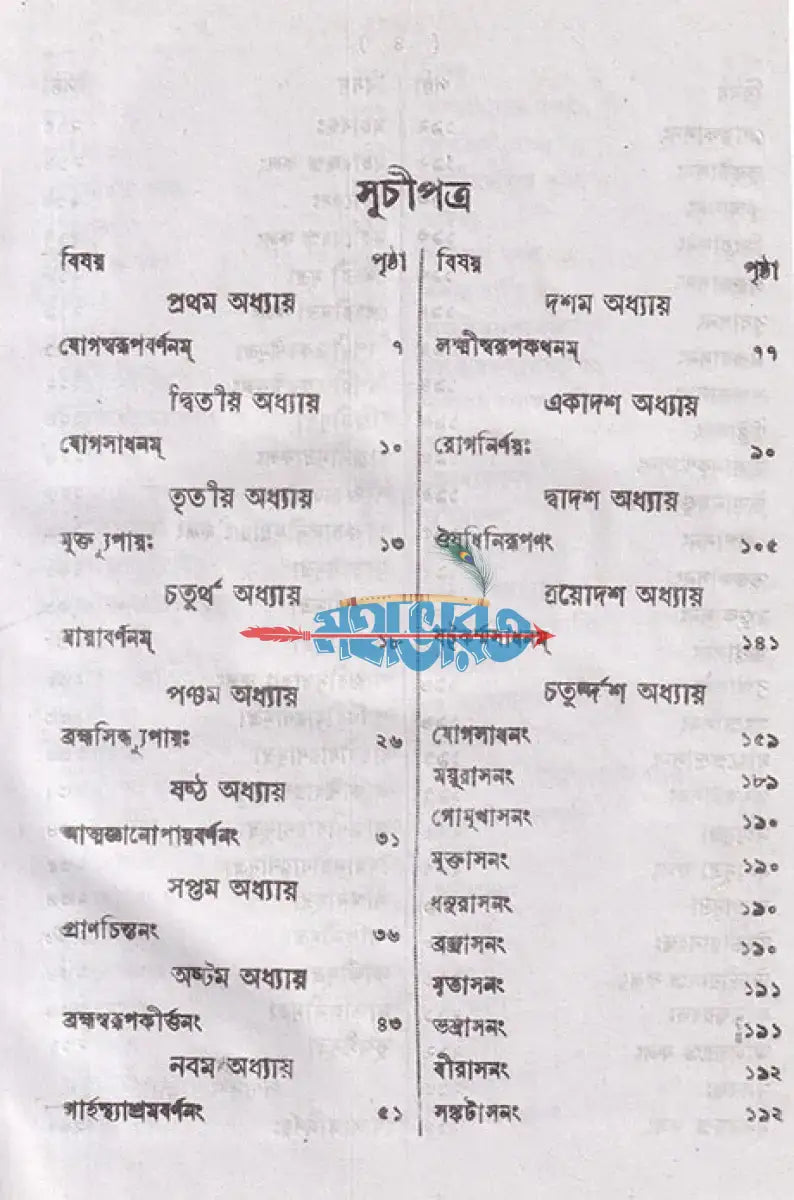 সূচীপত্র
বিষয় পৃষ্ঠা
প্রথম অধ্যায়
যোগস্বরূপবর্ণনম্ ৭
দ্বিতীয় অধ্যায়
যোগসাধনম্ ১০
তৃতীয় অধ্যায়
মুক্ত্যুপায়ঃ ১৩
চতুর্থ অধ্যায়
মায়াবর্ণনম্ ১৮
পঞ্চম অধ্যায়
ব্রহ্মসিদ্ধ্যুপায়ঃ ২৬
ষষ্ঠ অধ্যায়
আত্মজ্ঞানোপায়বর্ণনং ৩১
সপ্তম অধ্যায়
প্রাণচিন্তনং ৩৬
অষ্টম অধ্যায়
ব্রহ্মস্বরূপকীর্ত্তনং ৪৩
নবম অধ্যায়
গার্হস্থ্যাশ্রমবর্ণনং ৫১
বিষয় পৃষ্ঠা
দশম অধ্যায়
লক্ষ্মীস্বরূপকথনম্ ৭৭
একাদশ অধ্যায়
রোগনির্ণয়ঃ ৯০
দ্বাদশ অধ্যায়
ঔষধিনিরূপণং ১০৫
ত্রয়োদশ অধ্যায়
ষট্‌কর্ম্মসাধনম্ ১৪১
চতুর্দ্দশ অধ্যায়
যোগসাধনং ১৫৯
ময়ূরাসনং ১৮৯
গোমুখাসনং ১৯০
মুক্তাসনং ১৯০
ধনুরাসনং ১৯০
বজ্রাসনং ১৯০
মৃতাসনং ১৯১
ভদ্রাসনং ১৯১
বীরাসনং ১৯২
সঙ্কটাসনং ১৯২
মহাভারত